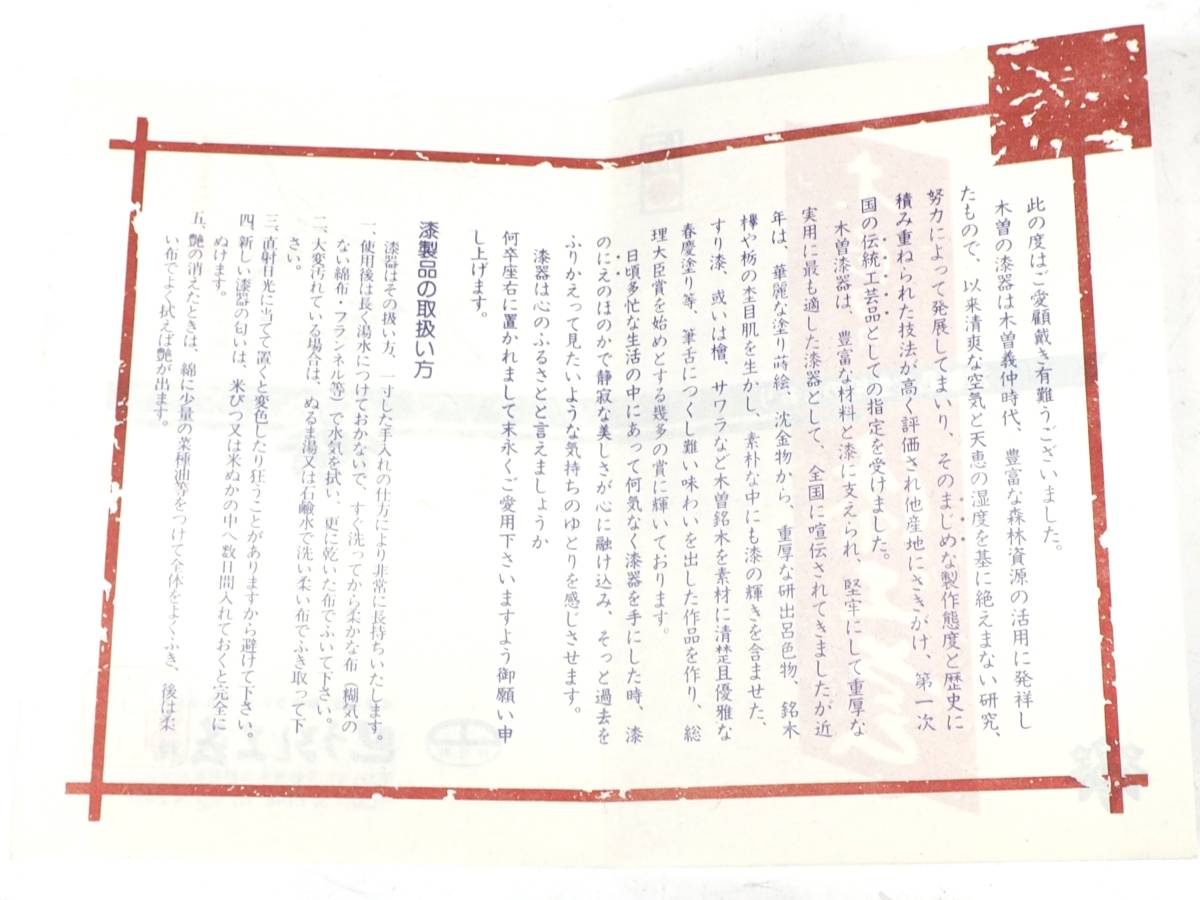 此の度はご愛顧戴き有難うございました。
木曽の漆器は木曽義仲時代、豊富な森林資源の活用に発祥し
たもので、以来清爽な空気と天恵の湿度を基に絶えまない研究、
努力によって発展してまいり、そのまじめな製作態度と歴史に
積み重ねられた技法が高く評価され他産地にさきがけ、第一次
国の伝統工芸品としての指定を受けました。
木曽漆器は、豊富な材料と漆に支えられ、堅牢にして重厚な
実用に最も適した漆器として、全国に喧伝されてきましたが近
年は、華麗な塗り蒔絵、沈金物から、重厚な研出呂色物、銘木
欅や栃の杢目肌を生かし、素朴な中にも漆の輝きを含ませた、
すり漆、或いは檜、サワラなど木曽銘木を素材に清楚且優雅な
春慶塗り等、筆舌につくし難い味わいを出した作品を作り、総
理大臣賞を始めとする幾多の賞に輝いております。
日頃多忙な生活の中にあって何気なく漆器を手にした時、漆
のにえのほのかで静寂な美しさが心に融け込み、そっと過去を
ふりかえって見たいような気持ちのゆとりを感じさせます。
漆器は心のふるさとと言えましょうか
何卒座右に置かれまして末永くご愛用下さいますよう御願い申
し上げます。
漆製品の取扱い方
漆器はその扱い方、一寸した手入れの仕方により非常に長持ちいたします。
一、使用後は長く湯水につけておかないで、すぐ洗ってから柔かな布（糊気の
ない綿布・フランネル等）で水気を拭い、更に乾いた布でふいて下さい。
二、大変汚れている場合は、ぬるま湯又は石鹼水で洗い柔い布でふき取って下
さい。
三、直射日光に当てて置くと変色したり狂うことがありますから避けて下さい。
四、新しい漆器の匂いは、米びつ又は米ぬかの中へ数日間入れておくと完全に
ぬけます。
五、艶の消えたときは、綿に少量の菜種油等をつけて全体をよくふき、後は柔
い布でよく拭えば艶が出ます。